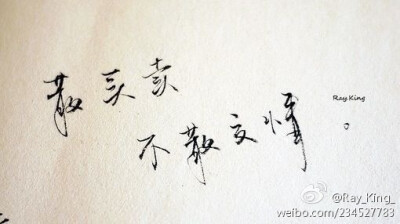 散买卖
不散交情。
Ray King
@Ray_King_
weibo.com/234527783